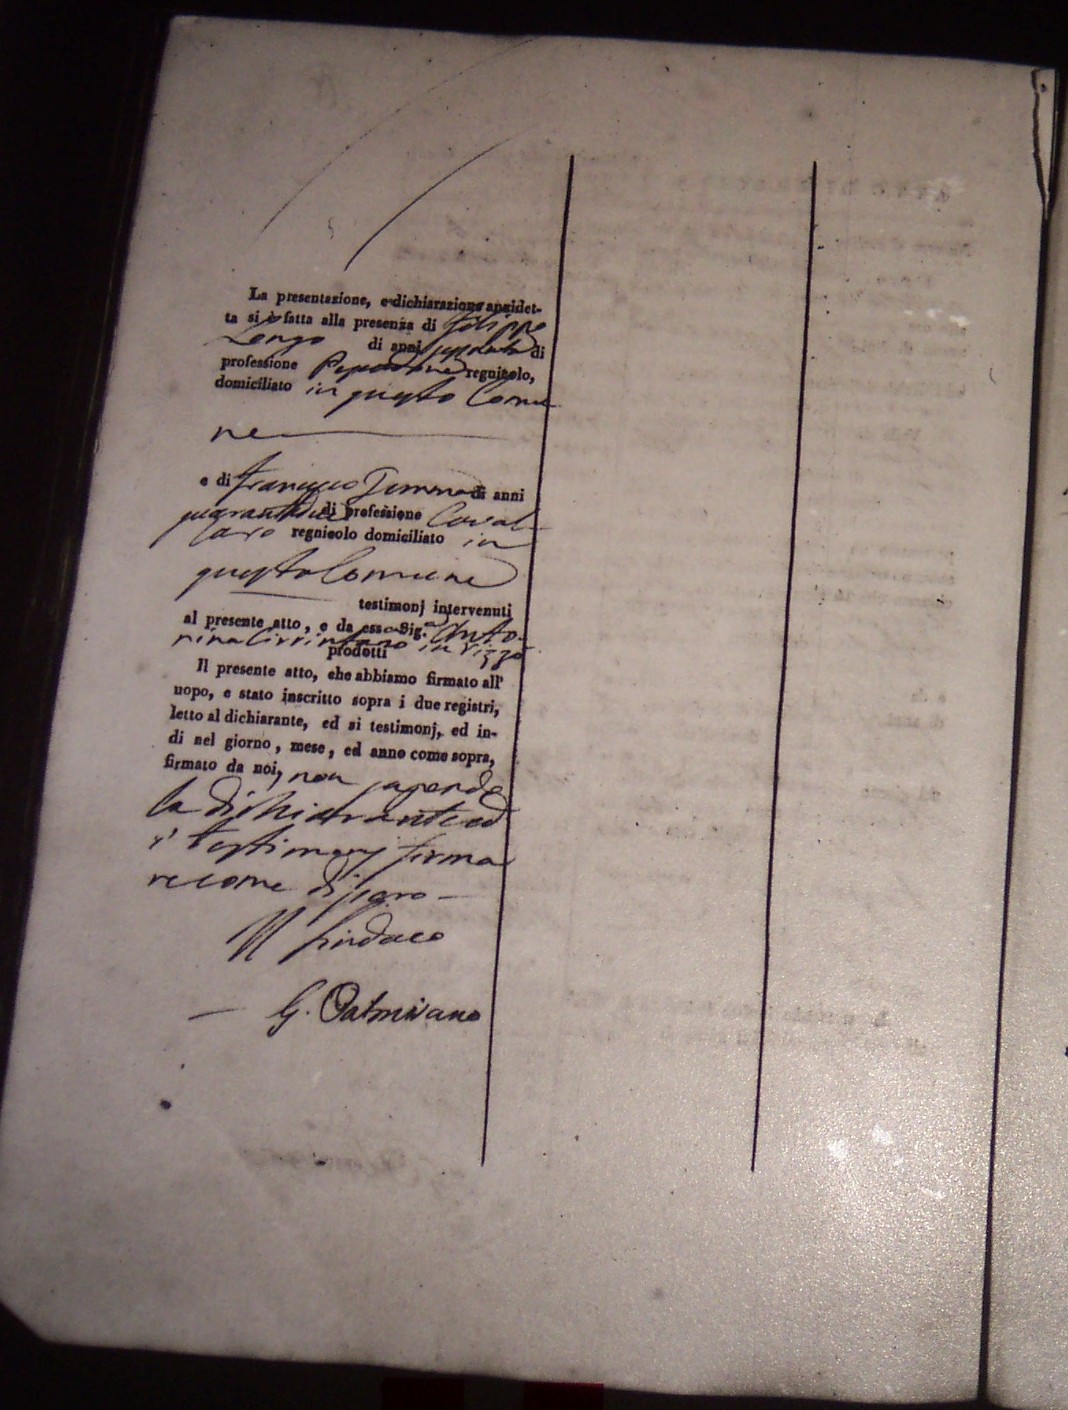 La presentazione, e dichiarazione anzidet-
ta si è fatta alla presenza di Filippo
Longo di anni di
professione regnicolo,
domiciliato in questo Comu
ne
e di Francesco di anni
di professione
regnicolo domiciliato in
questo Comune
testimonj intervenuti
al presente atto, e da essa Sig.a Anto-
nina in Rizzo
prodotti
Il presente atto, che abbiamo firmato all'
uopo, e stato inscritto sopra i due registri,
letto al dichiarante, ed ai testimonj, ed in-
di nel giorno, mese, ed anno come sopra,
firmato da noi, non sapendo
la dichiarante ed
i testimonj firma
re come disero
Il Sindaco
G. Palmisano